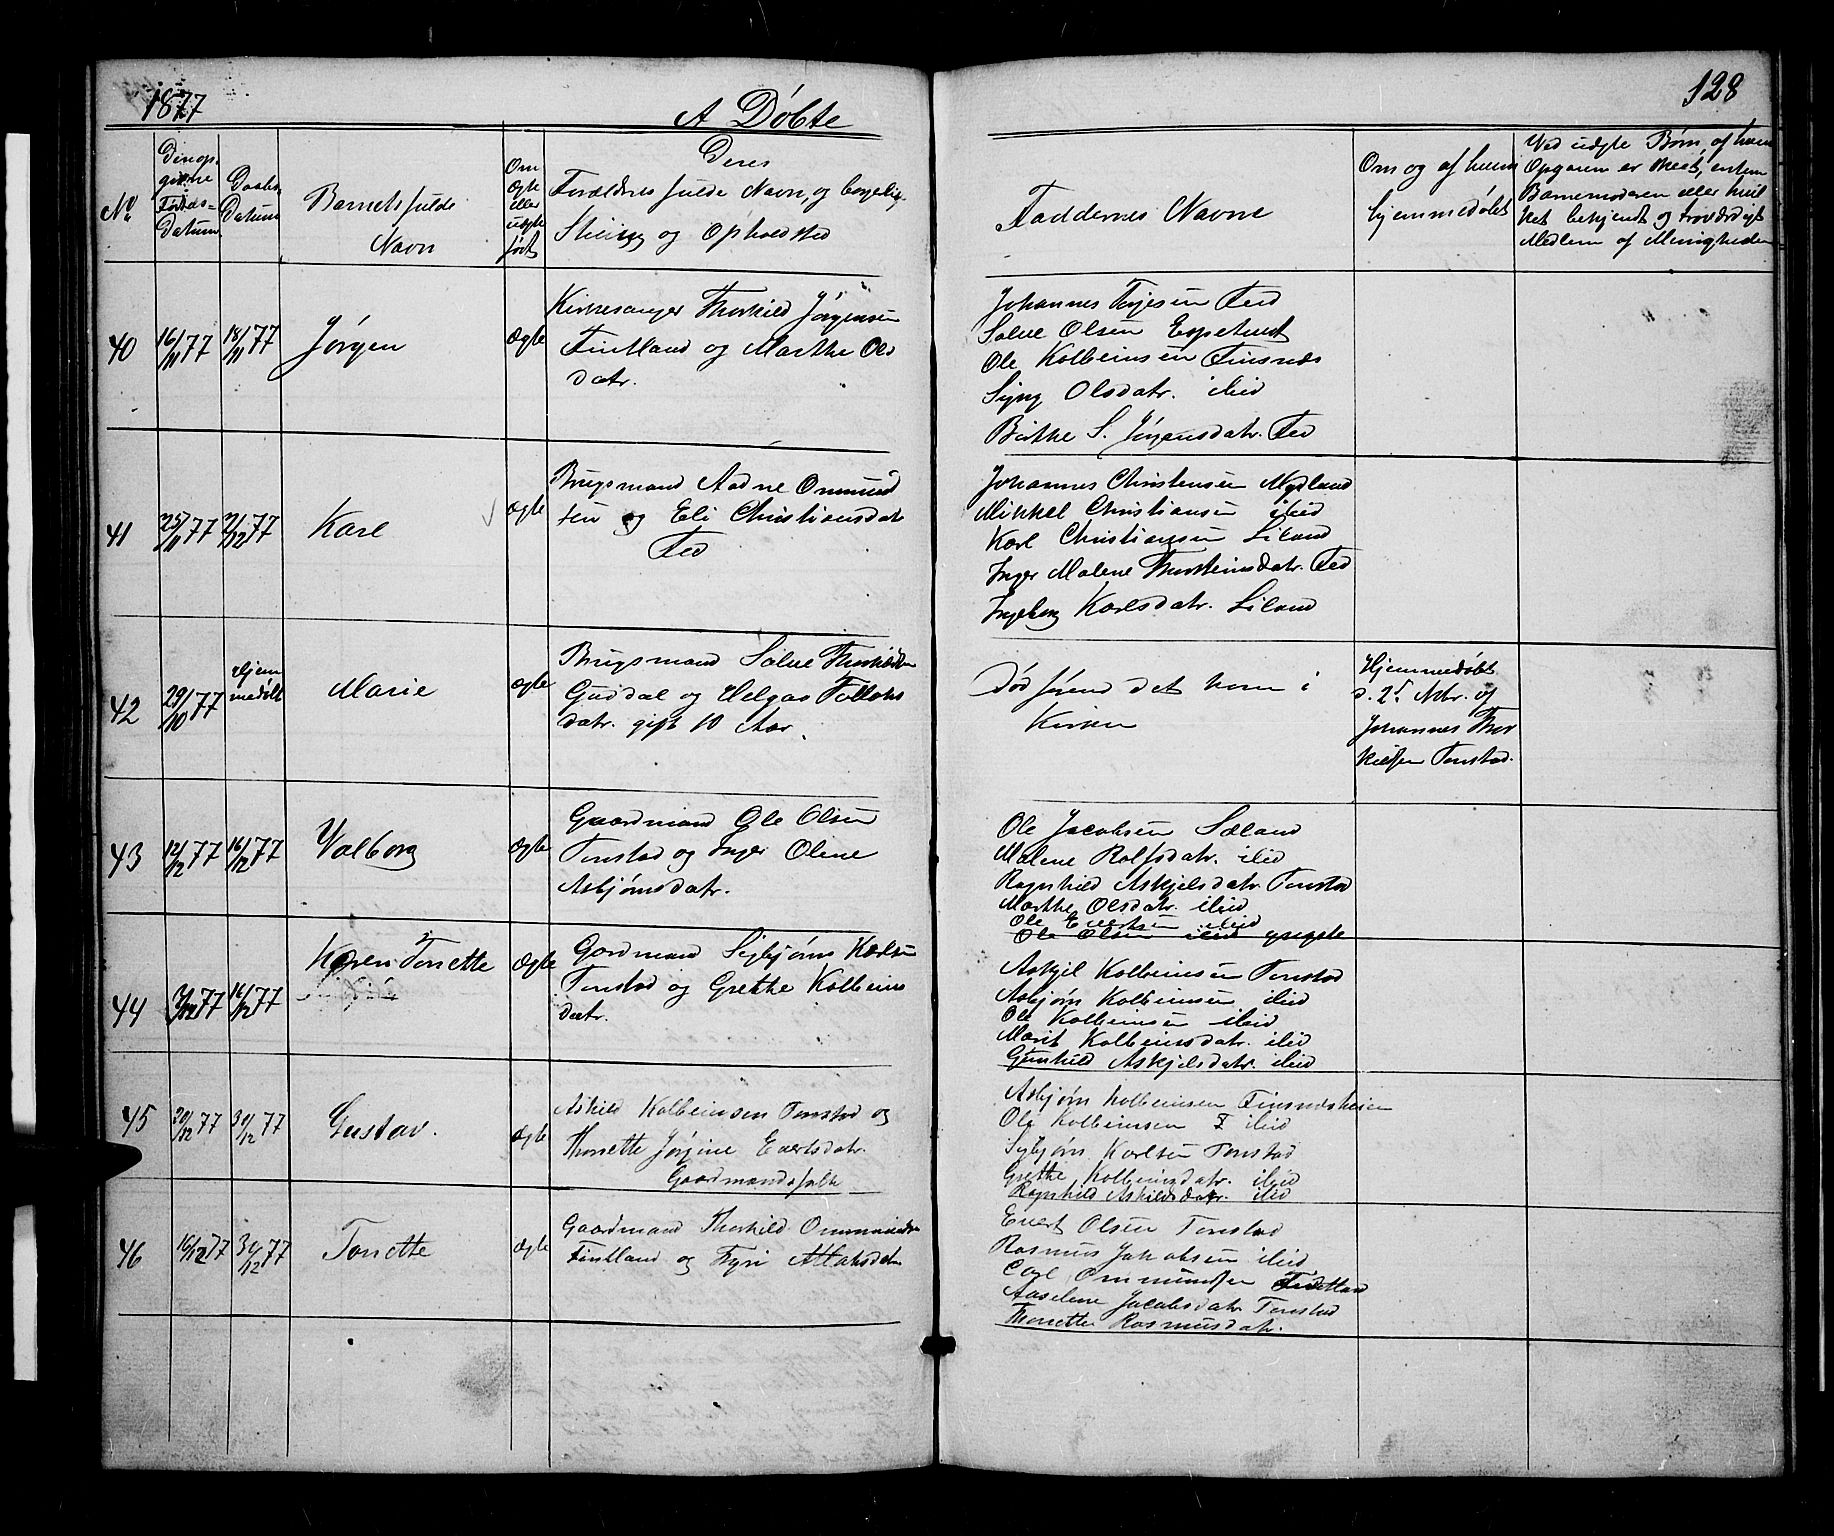 1877
A Døbte
128
No
Den op-
givne
Fødsels-
Datum
Daabs
Datum
Barnets fulde
Navn
Om
ægte
eller
uægte
født
Deres
Forældres fulde Navn, og borgelig
Stilling og Opholdsted
Faddernes Navne
Om og af hvem
hjemmedøbt
Ved uægte Børn, af hvem
Opgaven er skeet, enten
Barnemoderen eller hvil
ket bekjendt og troværdigt
Medlem af Menigheden
40
16/11 77
18/11 77
Jørgen
Ægte
Kirkesanger Thorkild Jørgensen
Fintland og Marthe Ols
datr.
Johannes Terjesen Fed
Salve Olsen Espetveit
Ole Kolbeinsen Finsnæs
Signy Olsdatr. ibid
Birthe S. Jørgensdatr. Fed
41
25/11 77
2/12 77
Karl
ægte
Brugsmand Aadne Ommund
sen og Eli Christiansdatr
Fed
Johannes Christensen Mydland
Mikkel Christiansen ibid
Karl Christiansen Liland
Inger Malene Thorkeinsdatr. Fed
Ingeborg Karlsdatr. Liland
42
29/10 77
Hjem
medøbt
Marie
ægte
Brugsmand Salve Thorkildsen
Guddal og Helga Tollaks
datr. gift 10 Aar.
Død førend det kom i
Kirken
Hjemmedøbt
d. 2. Nbr. af
Johannes Thor
kildsen Tonstad.
43
12/12 77
16/12 77
Valborg
ægte
Gaardmand Ole Olsen
Tonstad og Inger Oline
Asbjørnsdatr.
Ole Jacobsen Sæland
Malene Rolfsdatr. ibid
Ragnhild Askjelsdatr. Tonstad
Marthe Olsdatr. ibid
Ole Evertsen ibid
Ole Olsen ibid
44
16/12 77
Karen Tonette
Ægte
Gardmand Sigbjørn Karlsen
Tonstad og Grethe Kolbeins
datr.
Askjel Kolbeinsen Tonstad
Asbjørn Kolbeinsen ibid
Ole Kolbeinsen ibid
Marit Kolbeinsdatr. ibid
Gunhild Askjelsdatr. ibid
45
20/12 77
30/12 77
Gustav.
Ægte
Askild Kolbeinsen Tonstad og
Thonette Jørgine Evertsdatr.
Gaardmandsfolk
Asbjørn Kolbeinsen Finsnesheien
Ole Kolbeinsen ibid
Sigbjørn Karlsen Tonstad
Grethe Kolbeinsdatr. ibid
Ragnhild Askildsdatr. ibid
46
16/12 77
30/12 77
Tonette
Ægte
Gaardmand Thorkild Ommundsen
Fintland og Tyri Atlaksdatr
Evert Olsen Tonstad
Rasmus Jakobsen ibid
Carl Ommundsen Fintland
Aaselene Jacobsdatr Tonstad
Thonette Rasmusdatr.